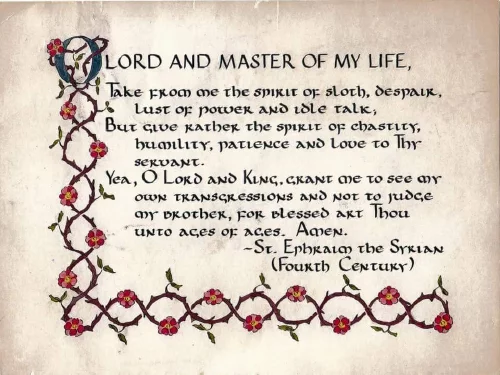 O LORD AND MASTER OF MY LIFE,
Take from me the spirit of sloth, despair,
lust of power and idle talk;
But give rather the spirit of chastity,
humility, patience and love to Thy
servant.
Yea, O Lord and King, grant me to see my
own transgressions and not to judge
my brother, for blessed art Thou
unto ages of ages. Amen.
~St. Ephraim the Syrian
(Fourth Century)